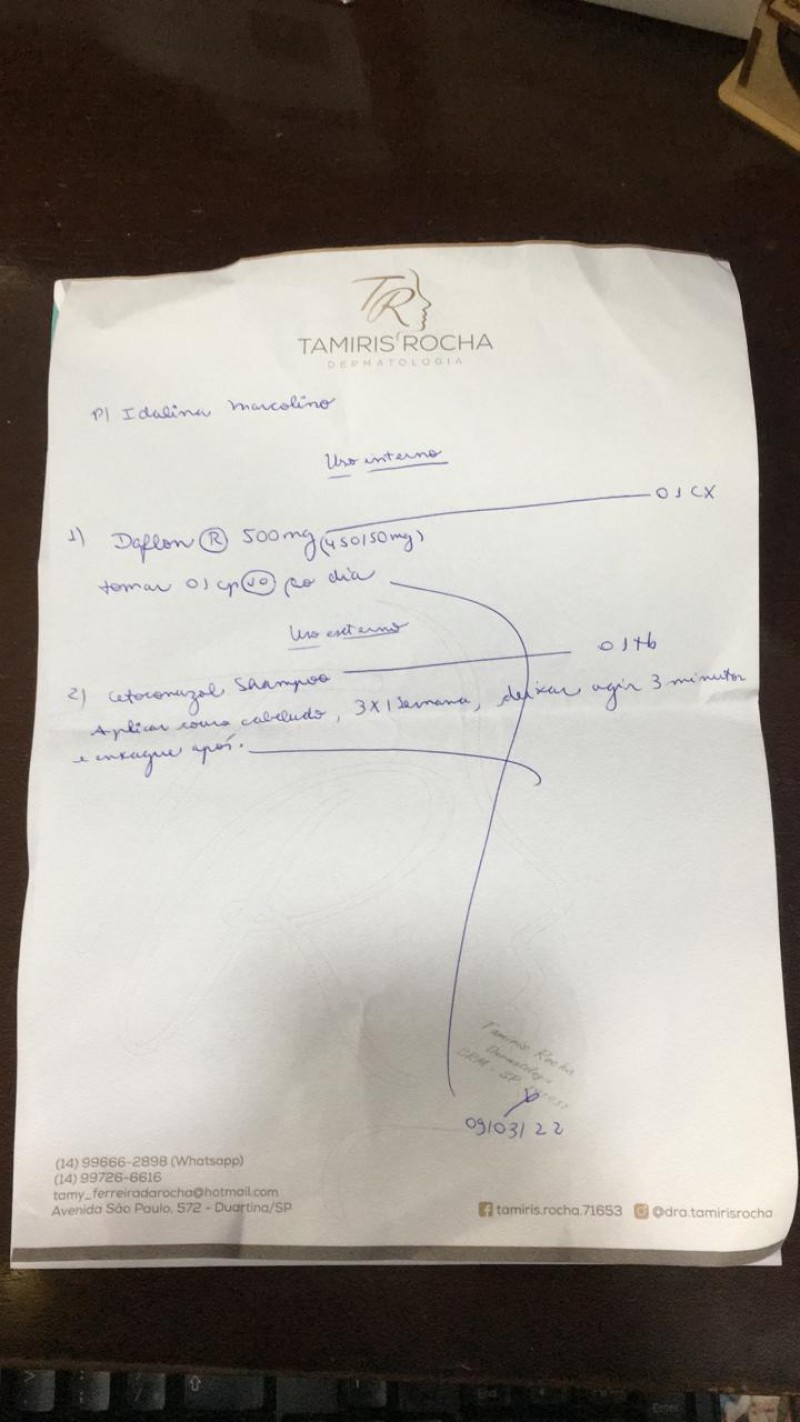 TR
TAMIRIS ROCHA
DERMATOLOGIA
P/ Idalina Marcolino
Uso interno
1) Daflon ® 500mg (450/50mg) 01 CX
tomar 01 cp VO po dia
Uso externo
2) Cetoconazol Shampoo 01 tb
Aplicar couro cabeludo, 3x/semana, deixar agir 3 minutos
e enxague após.
Tamiris Rocha
Dermatologia
CRM - SP
09/03/22
(14) 99666-2898 (Whatsapp)
(14) 99726-6616
tamy_ferreiradarocha@hotmail.com
Avenida São Paulo, 572 - Duartina/SP
tamiris.rocha.71653 @dra.tamirisrocha